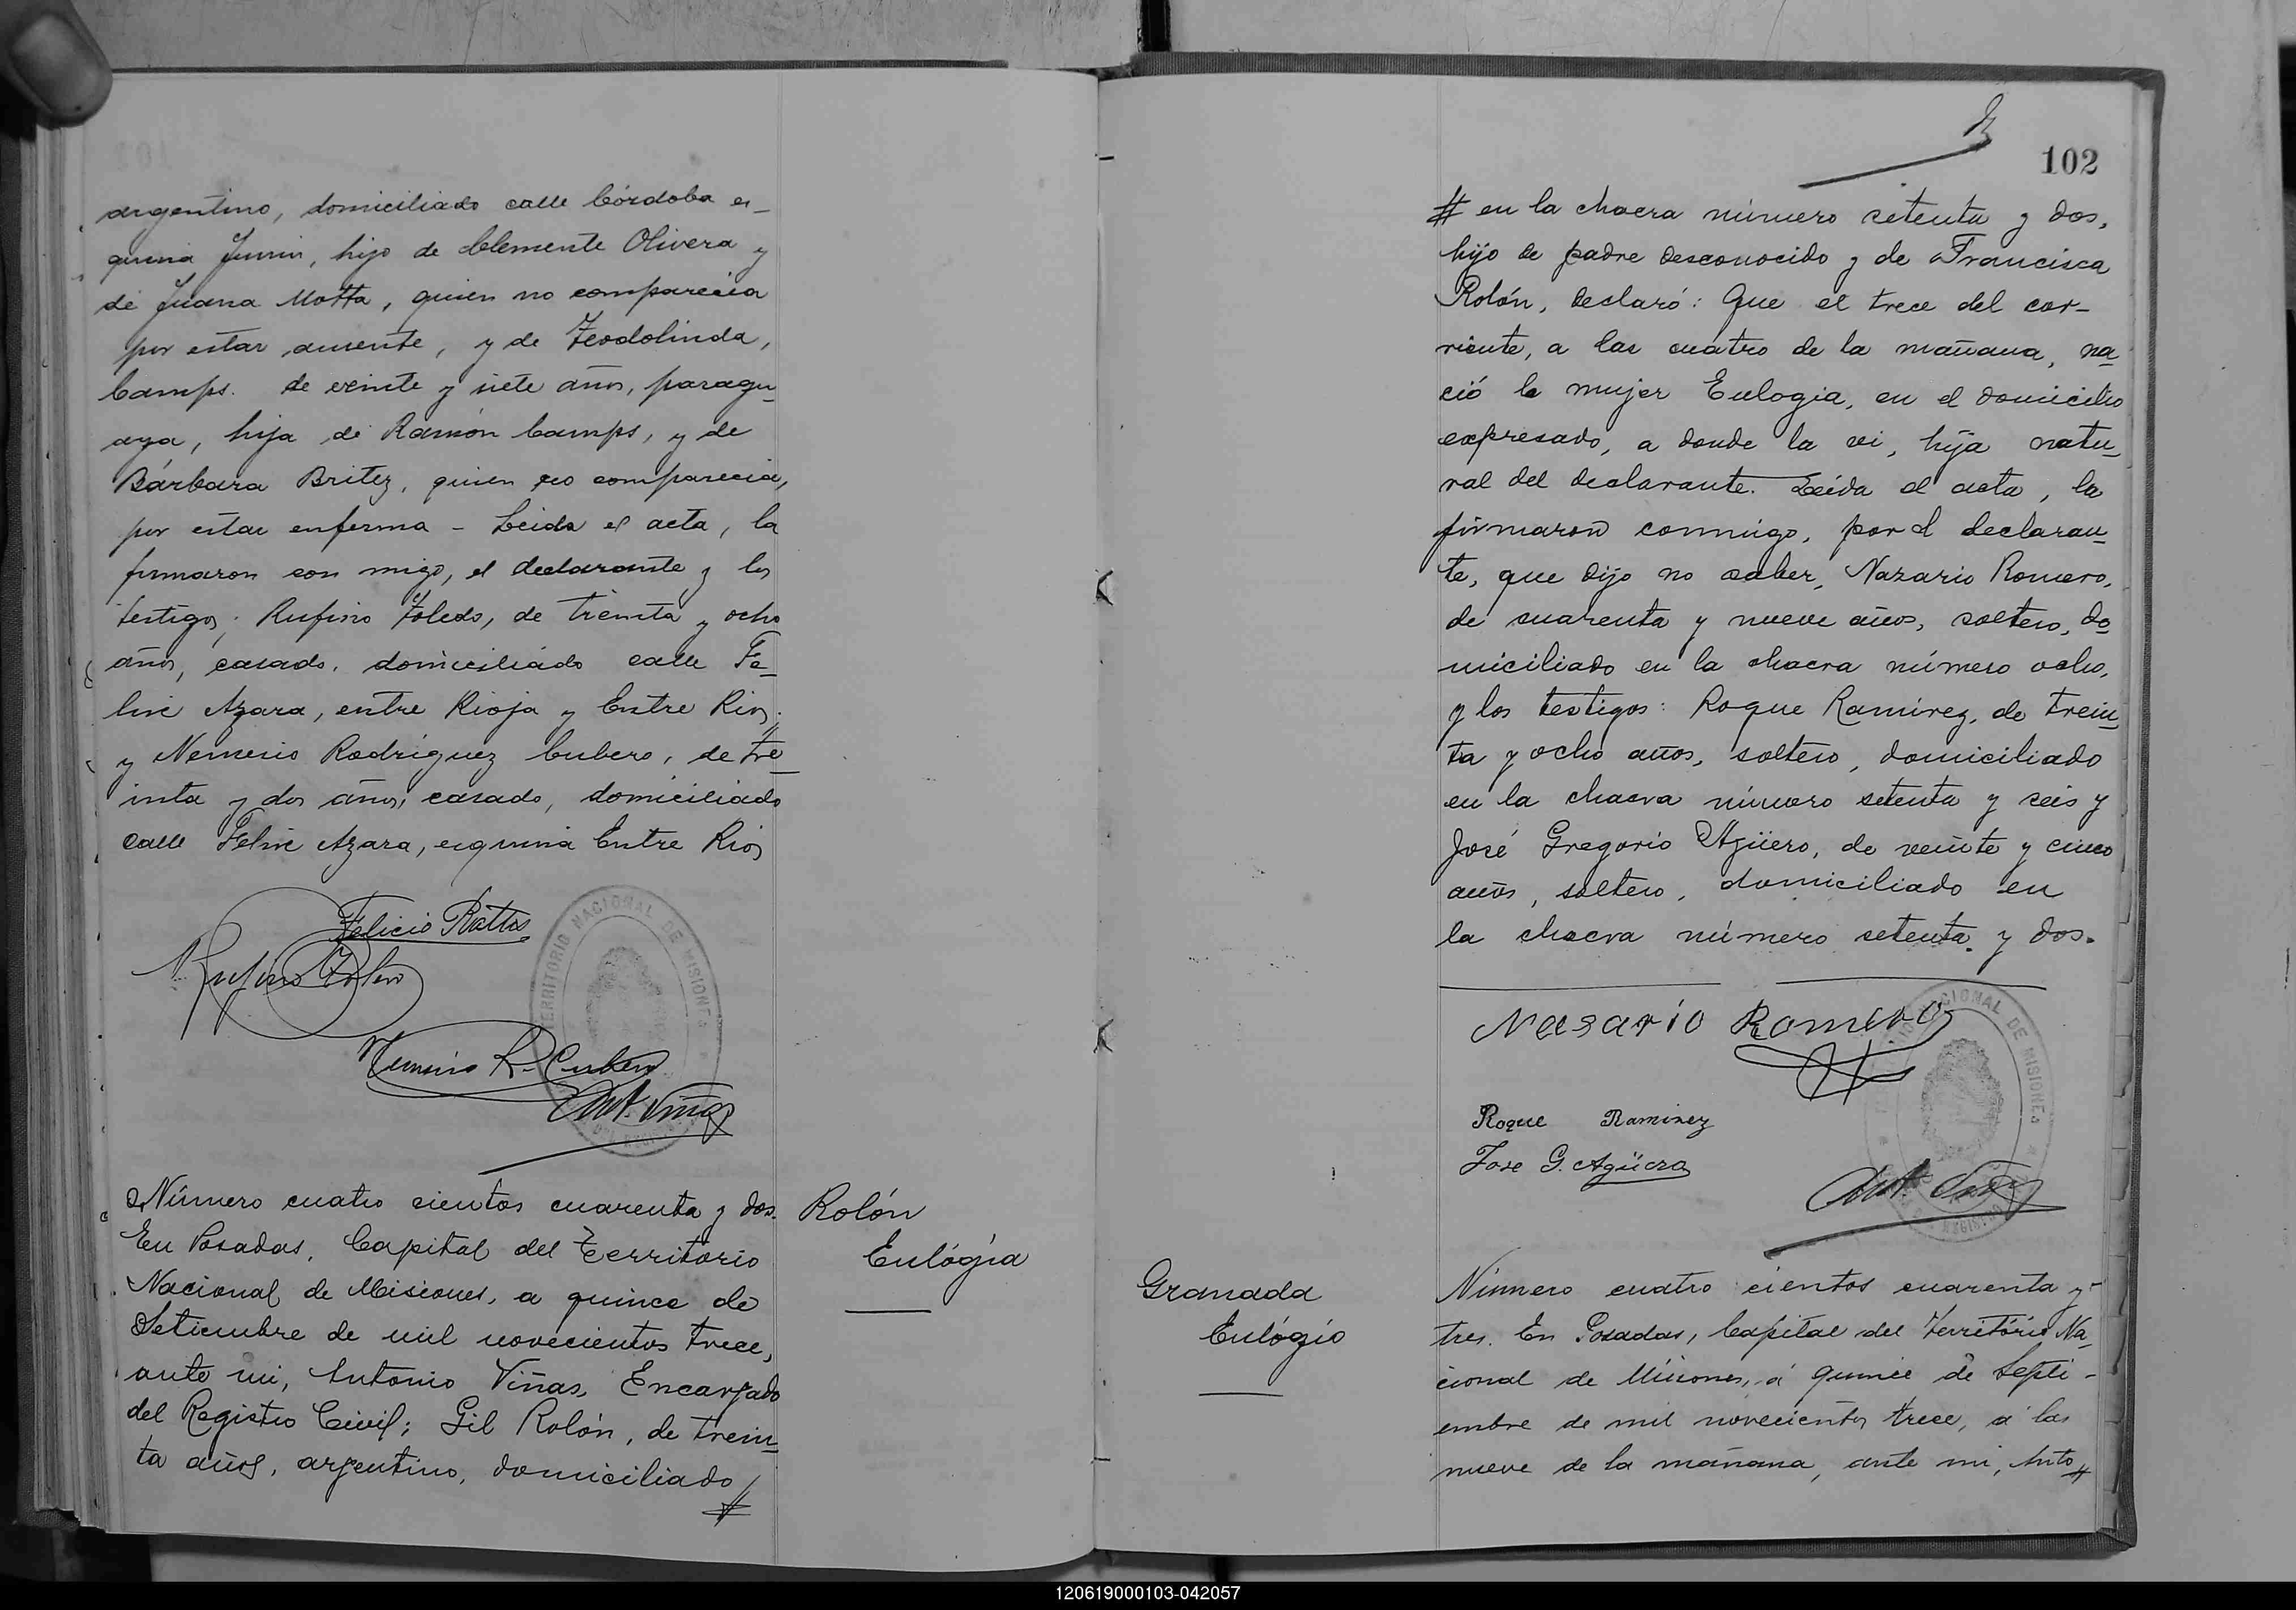 argentino, domiciliado calle Córdoba es-
quina Junin, hijo de Clemente Olivera y
de Juana Motta, quien no comparecia
por estar ausente, y de Teodolinda,
Camps. de veinte y siete años, paragu-
aya, hija de Ramón Camps, y de
Bárbara Britez, quien no comparecia,
por estar enferma - Leida el acta, la
firmaron con migo, el declarante y los
testigos; Rufino Toledo, de treinta y ocho
años, casado, domiciliado calle Fe-
lix Azara, entre Rioja y Entre Rios;
y Nemesio Rodríguez Cubero, de tre-
inta y dos años, casado, domiciliado
calle Felix Azara, esquina Entre Rios
Felicio Rattos
Rufino Toledo
Nemesio R. Cubero
Ant. Viñas
TERRITORIO NACIONAL DE MISIONES
Número cuatro cientos cuarenta y dos.
En Posadas, Capital del Territorio
Nacional de Misiones, a quince de
Setiembre de mil novecientos trece,
ante mi, Antonio Viñas, Encargado
del Registro Civil; Gil Rolón, de trein-
ta años, argentino, domiciliado
#
Rolón
Eulógia
102
# en la chacra número setenta y dos,
hijo de padre desconocido y de Francisca
Rolón, declaró: Que el trece del cor-
riente, a las cuatro de la mañana, na-
ció la mujer Eulogia, en el domicilio
expresado, a donde la vi, hija natu-
ral del declarante. Leida el acta, la
firmaron conmigo, por el declaran-
te, que dijo no saber, Nazario Romero,
de cuarenta y nueve años, soltero, do-
miciliado en la chacra número ocho,
y los testigos: Roque Ramirez, de trein-
ta y ocho años, soltero, domiciliado
en la chacra número setenta y seis y
José Gregorio Agüero, de veinte y cinco
años, soltero, domiciliado en
la chacra número setenta y dos.
Nasario Romero
Roque Ramirez
Jose G. Agüero
Ant. Viñas
NACIONAL DE MISIONES
Granada
Eulógio
Número cuatro cientos cuarenta y
tres. En Posadas, Capital del Território Na-
cional de Misiones, á quince de Septi-
embre de mil novecientos trece, á las
nueve de la mañana, ante mi, Anto#
120619000103-042057